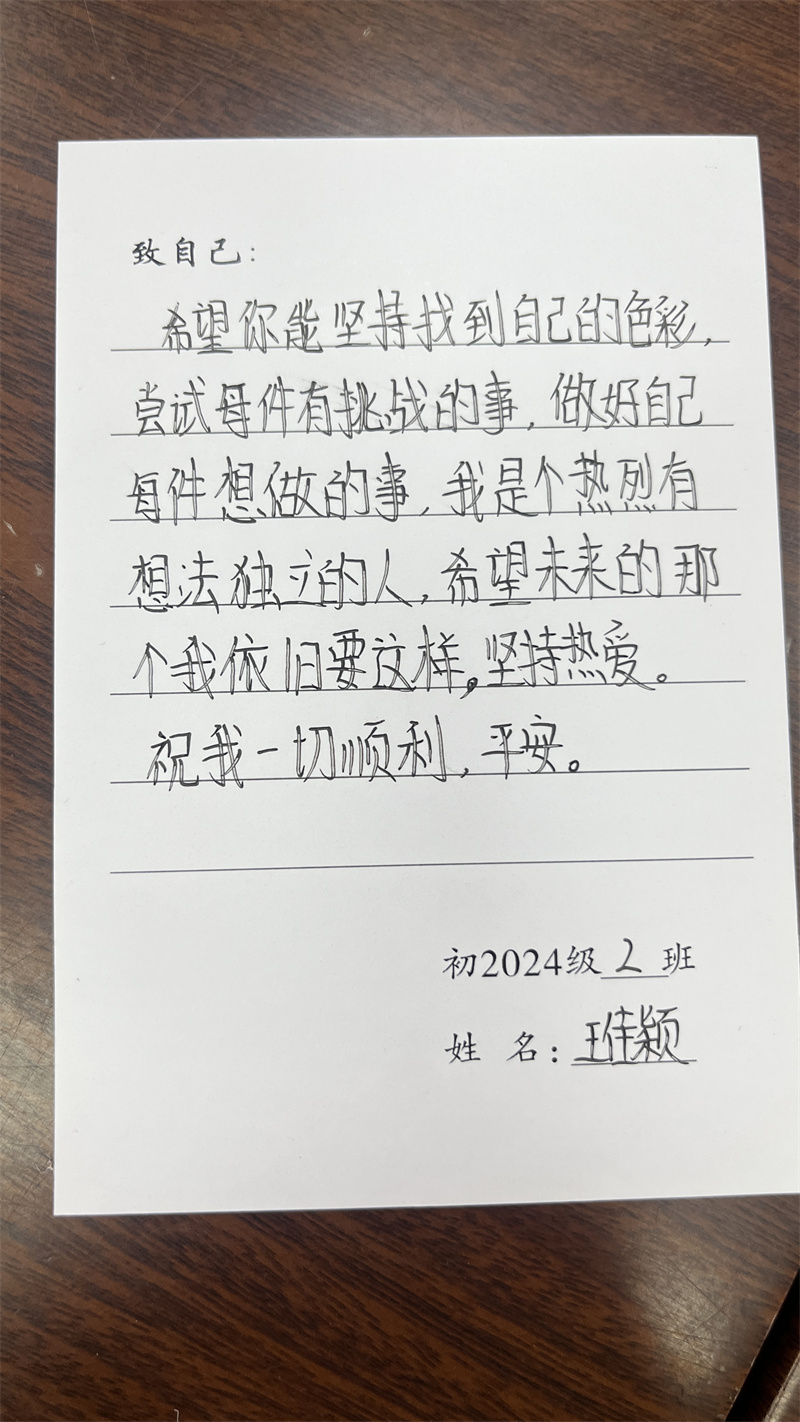 致自己：
希望你能坚持找到自己的色彩，
尝试每件有挑战的事，做好自己
每件想做的事，我是个热烈有
想法独立的人，希望未来的那
个我依旧要这样。坚持热爱。
祝我一切顺利，平安。
初2024级2班
姓 名：王佳颖